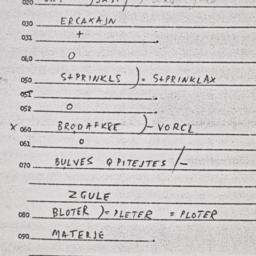 020
030 ERCAKAJN
031 +
040 O
050 S+PRINKLS ) = S+PRINKLAX
051
052 O
x 060 BRODAFKEE )- VORCL
061 O
070 BULVES Q PITEJTES /-
ZGULE
080 BLOTER )= PLETER = PLOTER
090 MATERJE